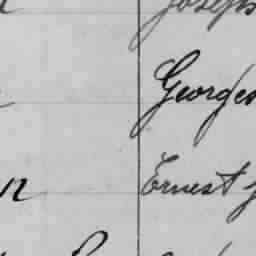 Joseph
Georges
n Ernest J